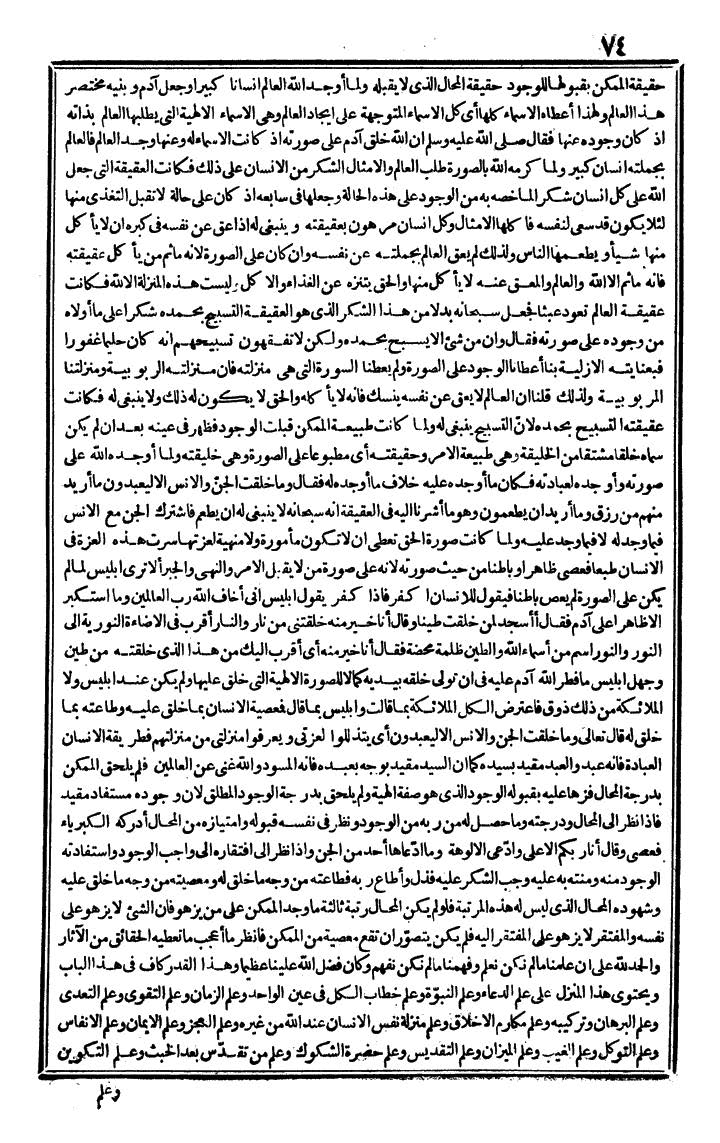 ٧٤
حقيقة الممكن بقبولها للوجود حقيقة المحال الذى لا يقبله ولما أوجد الله العالم انسانا كبيرا وجعل آدم وبنيه مختصر
هذا العالم ولهذا أعطاه الاسماء كلها أى كل الاسماء المتوجهة على ايجاد العالم وهى الاسماء الالهية التى يطلبها العالم بذاته
اذ كان وجوده عنها فقال صلى الله عليه وسلم ان الله خلق آدم على صورته اذ كانت الاسماء له وعنها وجد العالم فالعالم
بجملته انسان كبير ولما كرمه الله بالصورة طلب العالم والامثال الشكر من الانسان على ذلك فكانت العقيقة التى جعل
الله على كل انسان شكر الما خصه به من الوجود على هذه الحالة وجعلها فى سابعه اذ كان على حالة لا تقبل التغذى منها
لئلا يكون قد سعى لنفسه فأ كلها الامثال وكل انسان مرهون بعقيقته وينبغى له اذا عق عن نفسه فى كبره ان لا يأ كل
منها شيأ ويطعمها الناس ولذلك لم يعق العالم بجملته عن نفسه وان كان على الصورة لانه ما ثم من يأ كل عقيقته
فانه ما ثم الا الله والعالم والمعق عنه لا يأ كل منها والحق يتنزه عن الغذاء والا كل وليست هذه المنزلة الا لله فكانت
عقيقة العالم تعود عبثا فجعل سبحانه بدلا من هذا الشكر الذى هو العقيقة التسبيح بحمده شكرا على ما أولاه
من وجوده على صورته فقال وان من شئ الا يسبح بحمده ولكن لا تفقهون تسبيحهم انه كان حليما غفورا
فبعنايته الازلية بنا أعطانا الوجود على الصورة ولم يعطنا السورة التى هى منزلته فان منزلته الربوبية ومنزلتنا
المربوبية ولذلك قلنا ان العالم لا يعق عن نفسه ينسك فانه لا يأ كله والحق لا يكون له ذلك ولا ينبغى له فكانت
عقيقته التسبيح بحمده لانّ التسبيح ينبغى له ولما كانت طبيعة الممكن قبلت الوجود فظهر فى عينه بعد ان لم يكن
سماه خلقا مشتقا من الخليقة وهى طبيعة الامر وحقيقته أى مطبوعا على الصورة وهى خليقته ولما أوجده الله على
صورته وأوجده لعبادته فكان ما أوجده عليه خلاف ما أوجده له فقال وما خلقت الجنّ والانس الا ليعبدون ما أريد
منهم من رزق وما أريد ان يطعمون وهو ما أشرنا اليه فى العقيقة انه سبحانه لا ينبغى له ان يطعم فاشترك الجن مع الانس
فيما وجد له لا فيما وجد عليه ولما كانت صورة الحق تعطى ان لا تكون مأمورة ولا منهية لعزتها سرت هذه العزة فى
الانسان طبعا فعصى ظاهرا وباطنا من حيث صورته لانه على صورة من لا يقبل الامر والنهى والجبر ألا ترى ابليس لما لم
يكن على الصورة لم يعص باطنا فيقول للانسان ا كفر فاذا كفر يقول ابليس انى أخاف الله رب العالمين وما استكبر
الا ظاهرا على آدم فقال أأسجد لمن خلقت طينا وقال أنا خير منه خلقتنى من نار والنار أقرب فى الاضاءة النورية الى
النور والنور اسم من أسماء الله والطين ظلمة محضة فقال أنا خير منه أى أقرب اليك من هذا الذى خلقته من طين
وجهل ابليس ما فطر الله آدم عليه فى ان تولى خلقه بيديه كمالا للصورة الالهية التى خلق عليها ولم يكن عند ابليس ولا
الملائكة من ذلك ذوق فاعترض الكل الملائكة بما قالت وابليس بما قال فمعصية الانسان بما خلق عليه وطاعته بما
خلق له قال تعالى وما خلقت الجن والانس الا ليعبدون أى يتذللوا لعزتى ويعرفوا منزلتى من منزلتهم فطريقة الانسان
العبادة فانه عبد والعبد مقيد بسيده كما ان السيد مقيد بوجه بعبده فانه المسود والله غنى عن العالمين فلم يلحق الممكن
بدرجة المحال فزها عليه بقبوله الوجود الذى هو صفة الهية ولم يلحق بدرجة الوجود المطلق لان وجوده مستفاد مقيد
فاذا نظر الى المحال ودرجته وما حصل له من ربه من الوجود ونظر فى نفسه قبوله وامتيازه من المحال أدركه الكبرياء
فعصى وقال أنا ربكم الاعلى وادّعى الالوهة وما ادّعاها أحد من الجن واذا نظر الى افتقاره الى واجب الوجود واستفادته
الوجود منه ومنته به عليه وجب الشكر عليه فذل وأطاع ربه فطاعته من وجه ما خلق له ومعصيته من وجه ما خلق عليه
وشهوده المحال الذى ليس له هذه المرتبة فلو لم يكن المحال رتبة ثالثة ما وجد الممكن على من يزهو فان الشئ لا يزهو على
نفسه والمفتقر لا يزهو على المفتقر اليه فلم يكن يتصوّر ان تقع معصية من الممكن فانظر ما أعجب ما تعطيه الحقائق من الآثار
والحمد لله على ان علمنا ما لم نكن نعلم وفهمنا ما لم نكن نفهم وكان فضل الله علينا عظيما وهذا القدر كاف فى هذا الباب
ويحتوى هذا المنزل على علم الدعاء وعلم النبوّة وعلم خطاب الكل فى عين الواحد وعلم الزمان وعلم التقوى وعلم التعدى
وعلم البرهان وتركيبه وعلم مكارم الاخلاق وعلم منزلة نفس الانسان عند الله من غيره وعلم العجز وعلم الايمان وعلم الانفاس
وعلم التوكل وعلم الغيب وعلم الميزان وعلم التقديس وعلم حضرة الشكوك وعلم من تقدّس بعد الخبث وعلم التكوين
وعلم